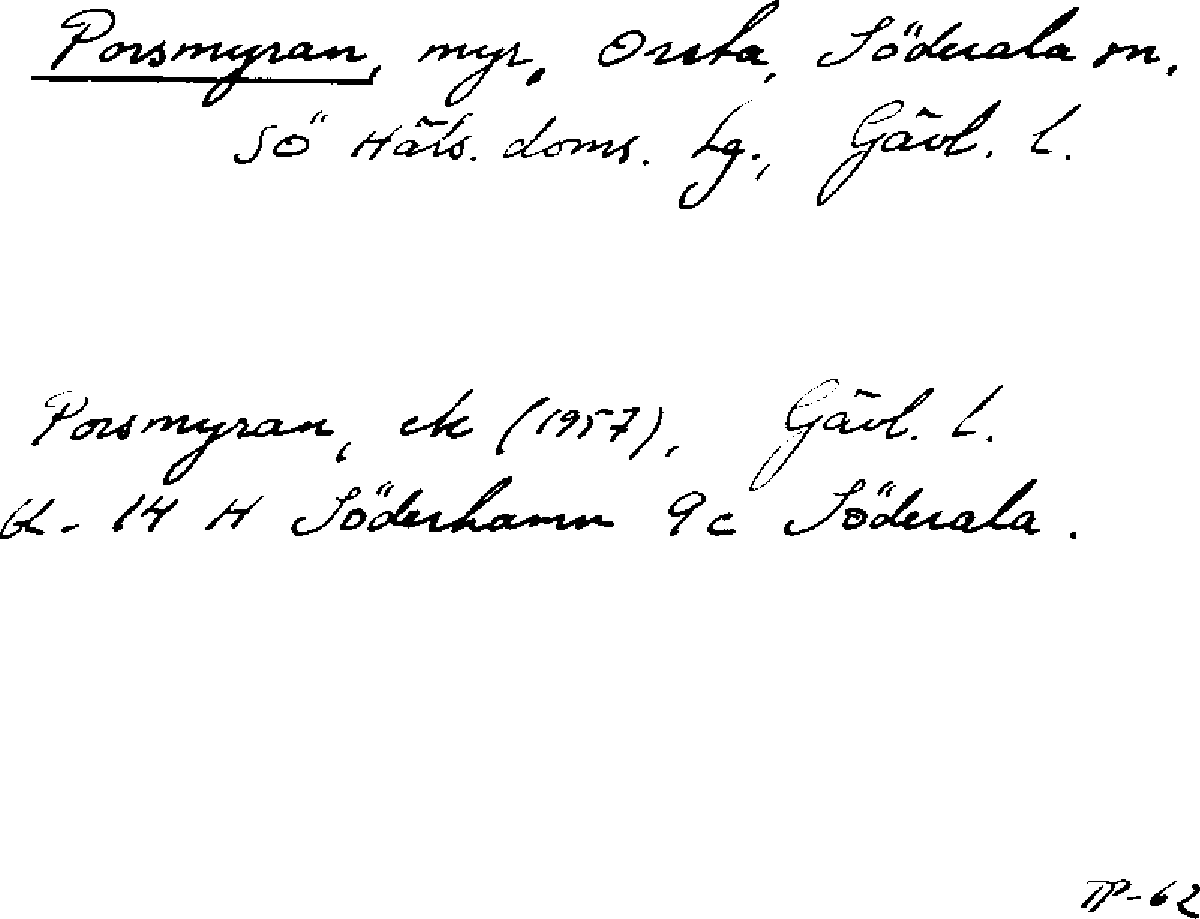 Porsmyran, myr, Orsta, Söderala sn,
SÖ Häls. doms. lg., Gävl. l.
Porsmyran, ek (1957), Gävl. l.
bl. 14 H Söderhamn 9c Söderala.
TP-62